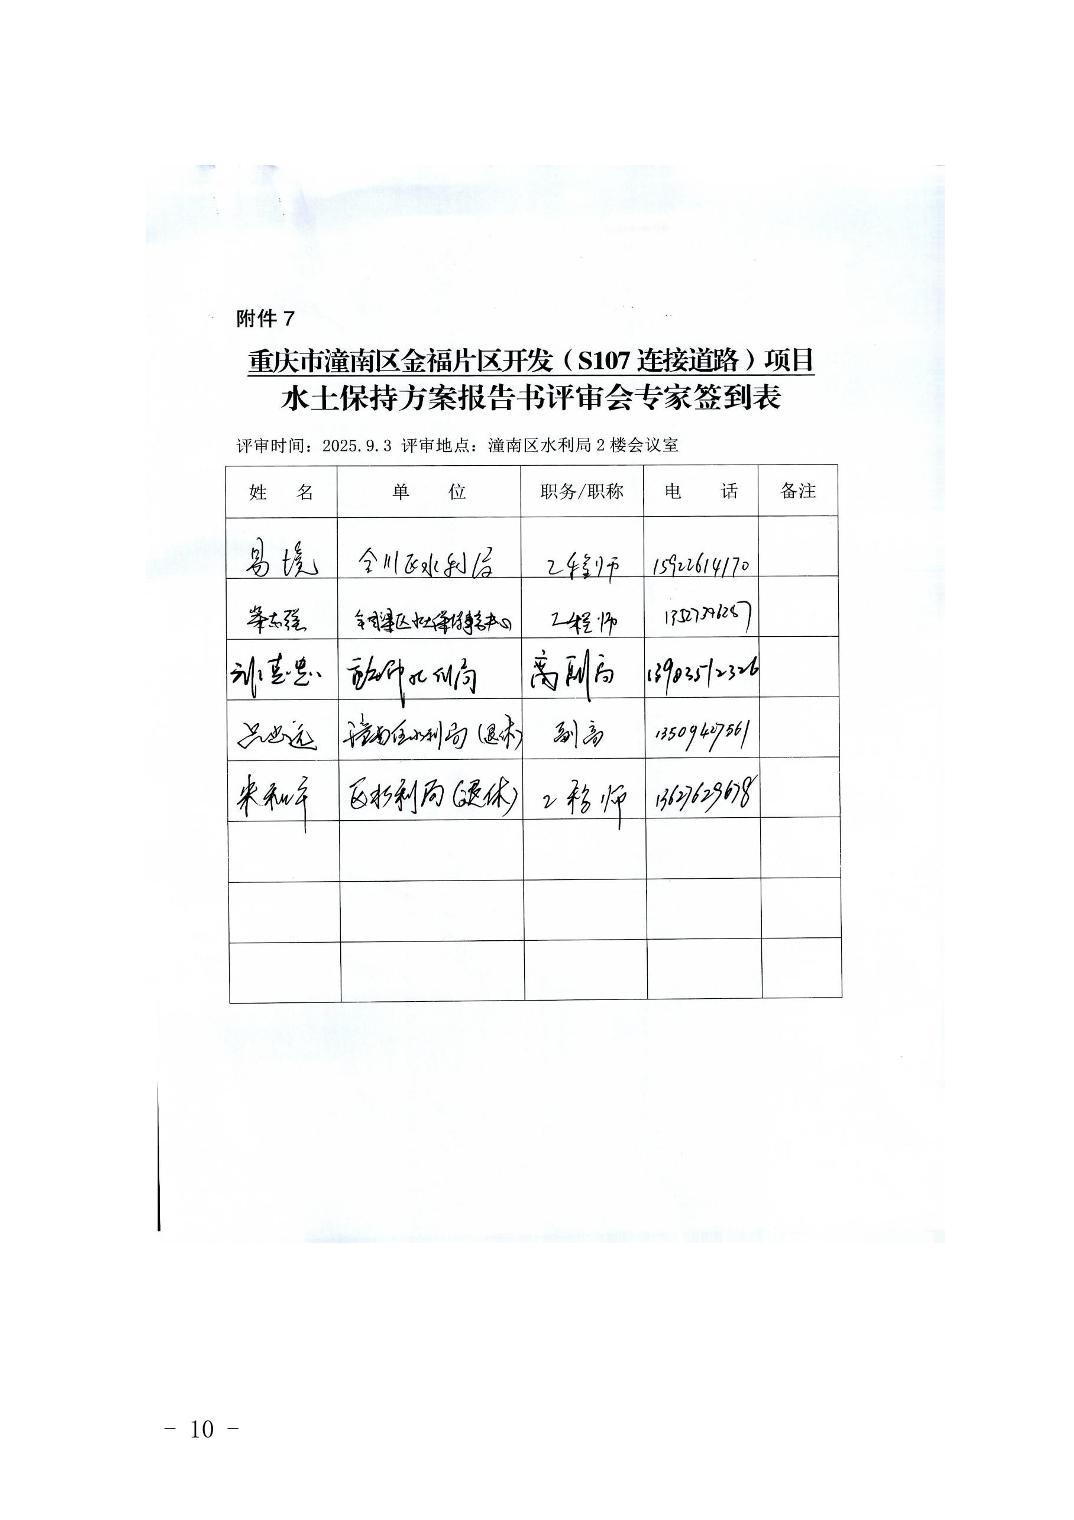 附件 7
重庆市潼南区金福片区开发（S107 连接道路）项目
水土保持方案报告书评审会专家签到表
评审时间：2025.9.3 评审地点：潼南区水利局 2 楼会议室
姓 名 单 位 职务/职称 电 话 备注
易境 合川区水利局 工程师 15922614170
工程师
水利局
潼南区水利局（退休） 副高 13509427561
米和平 区水利局（退休） 工程师 13627629678
- 10 -